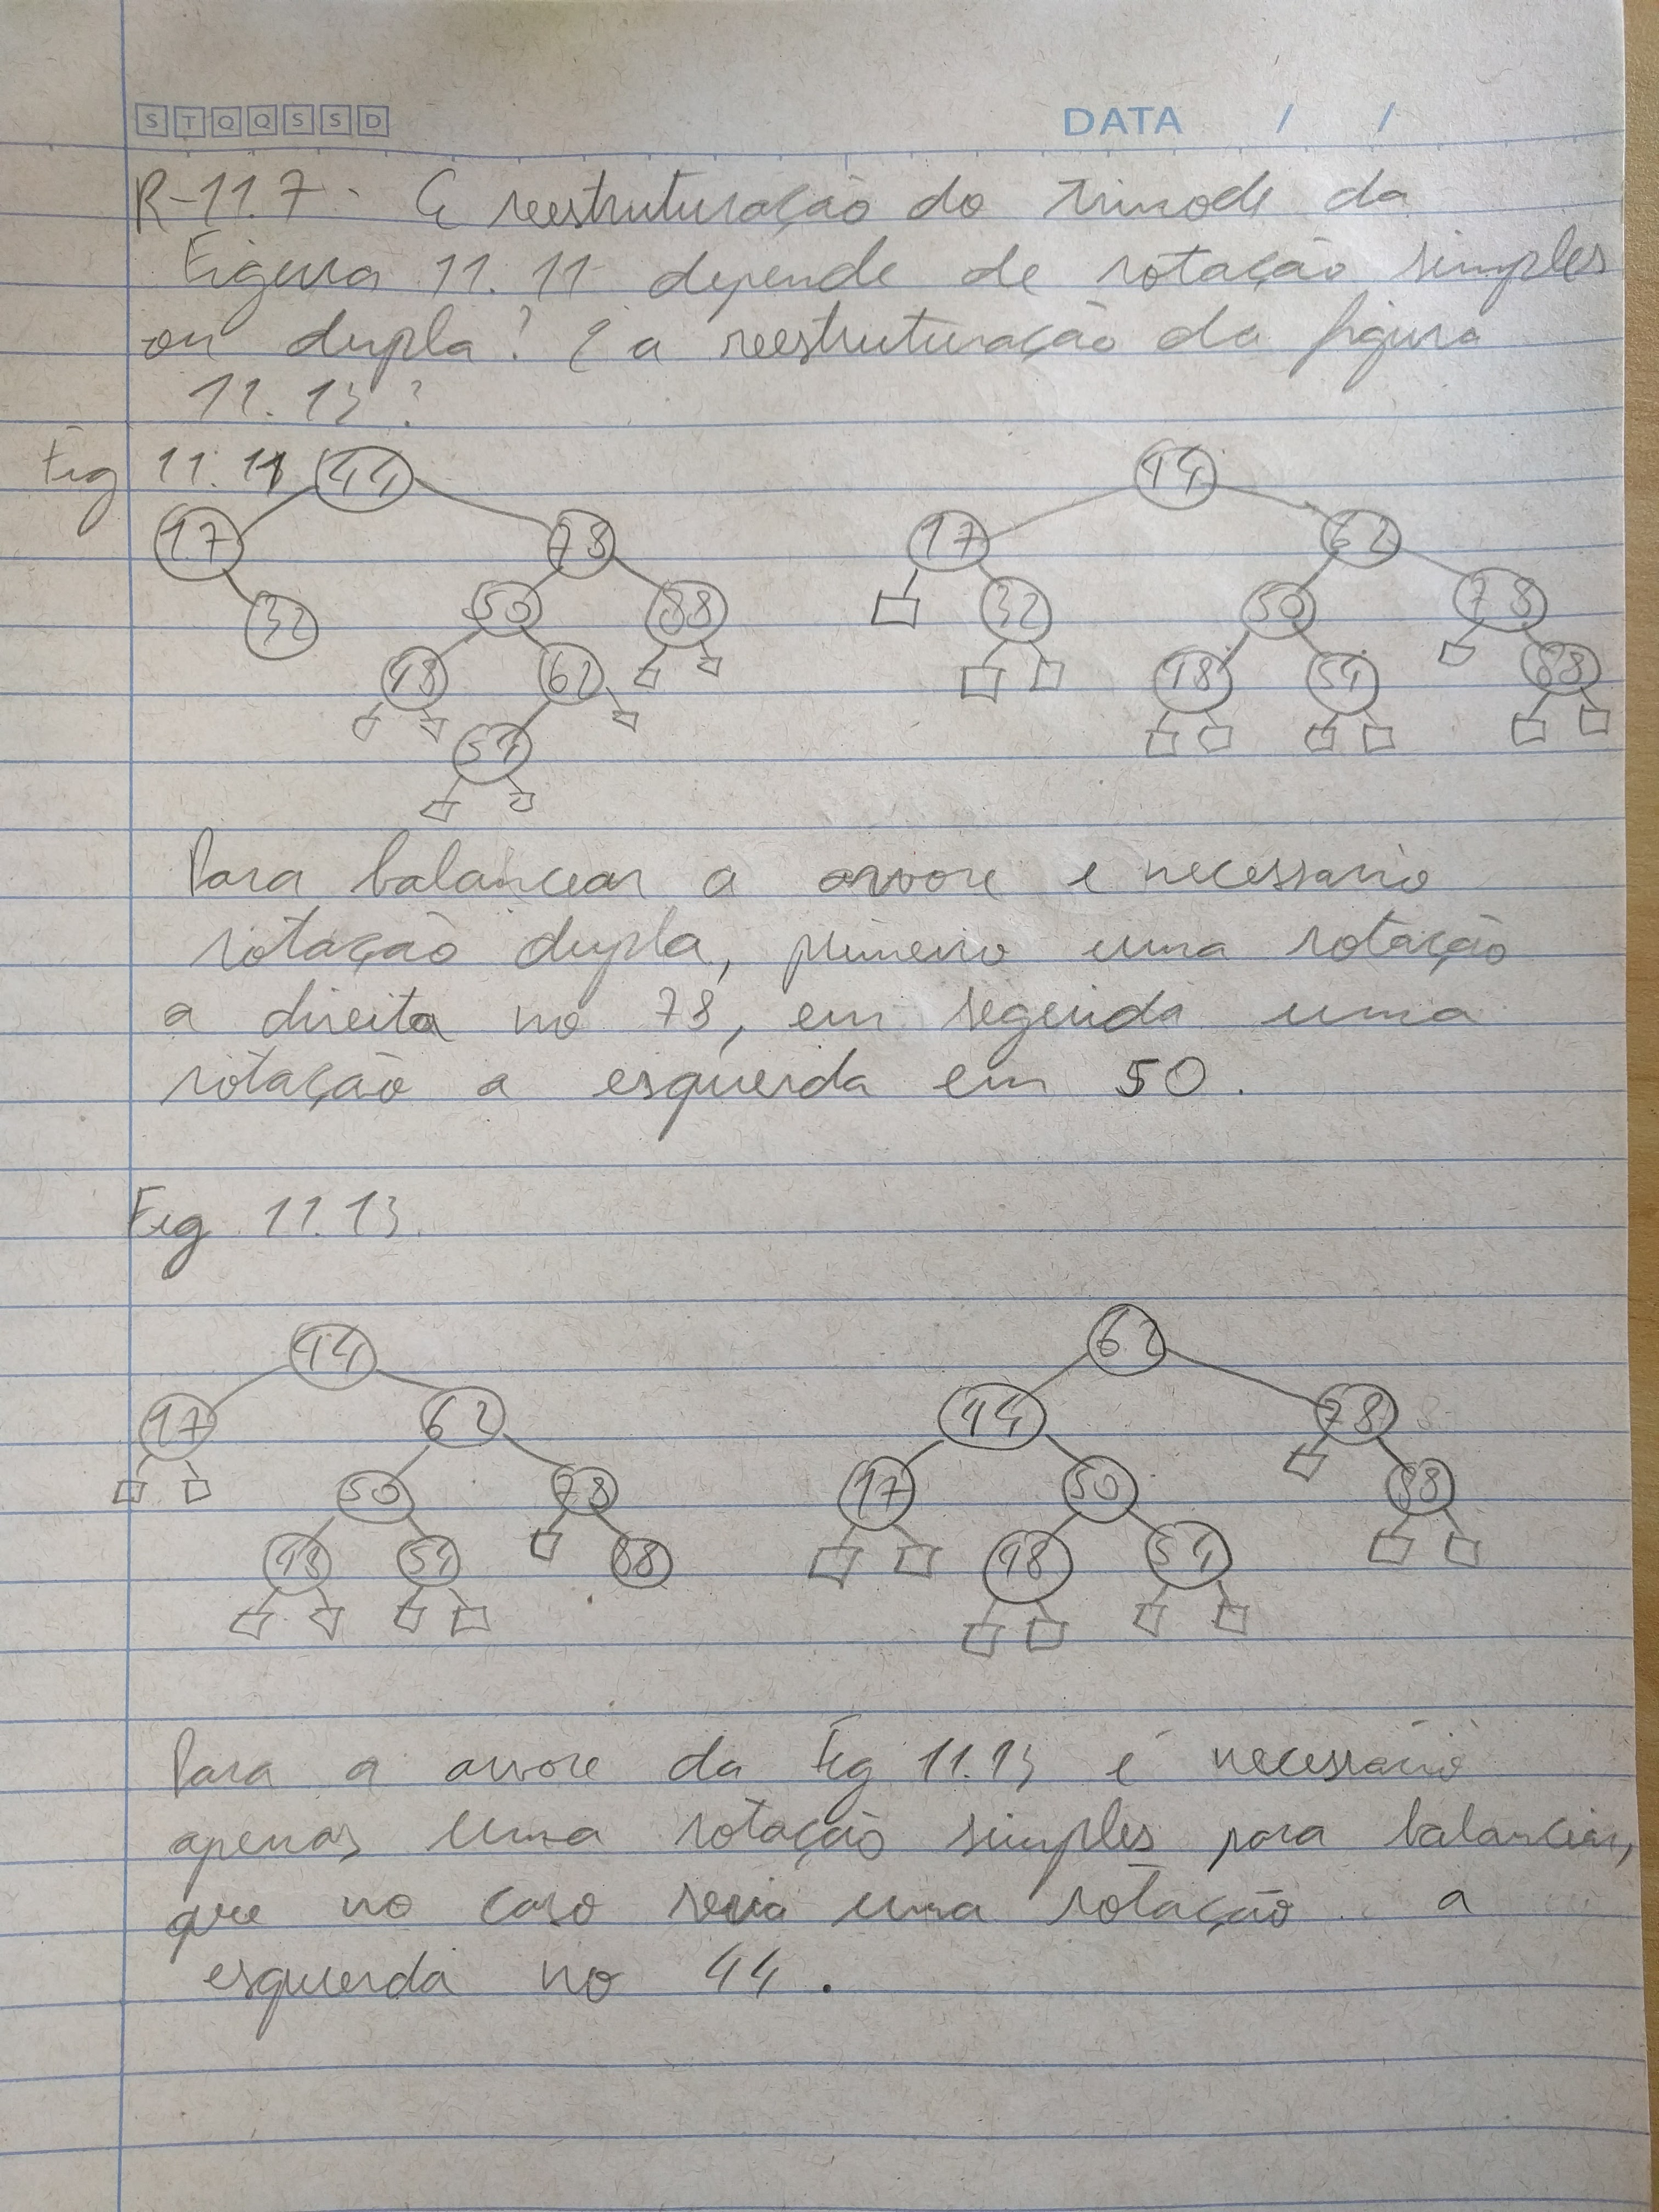 S T Q Q S S D
DATA / /
R-11.7. A reestruturação do trinode da
Figura 11.11 depende de rotação simples
ou dupla? E a reestruturação da figura
11.13?
Fig 11.11
44 44
17 78 17 62
32 50 88 32 50 78
48 62 48 54 88
54
Para balancear a arvore e necessario
rotação dupla, primeiro uma rotação
a direita no 78, em segenda uma
rotação a esquerda em 50.
Fig 11.13.
44 62
17 62 44 78
50 78 17 50 88
48 54 88 48 54
Para a arvore da Fig 11.13 é necessário
apenas uma rotação simples para balancear,
que no caso seria uma rotação a
esquerda no 44.